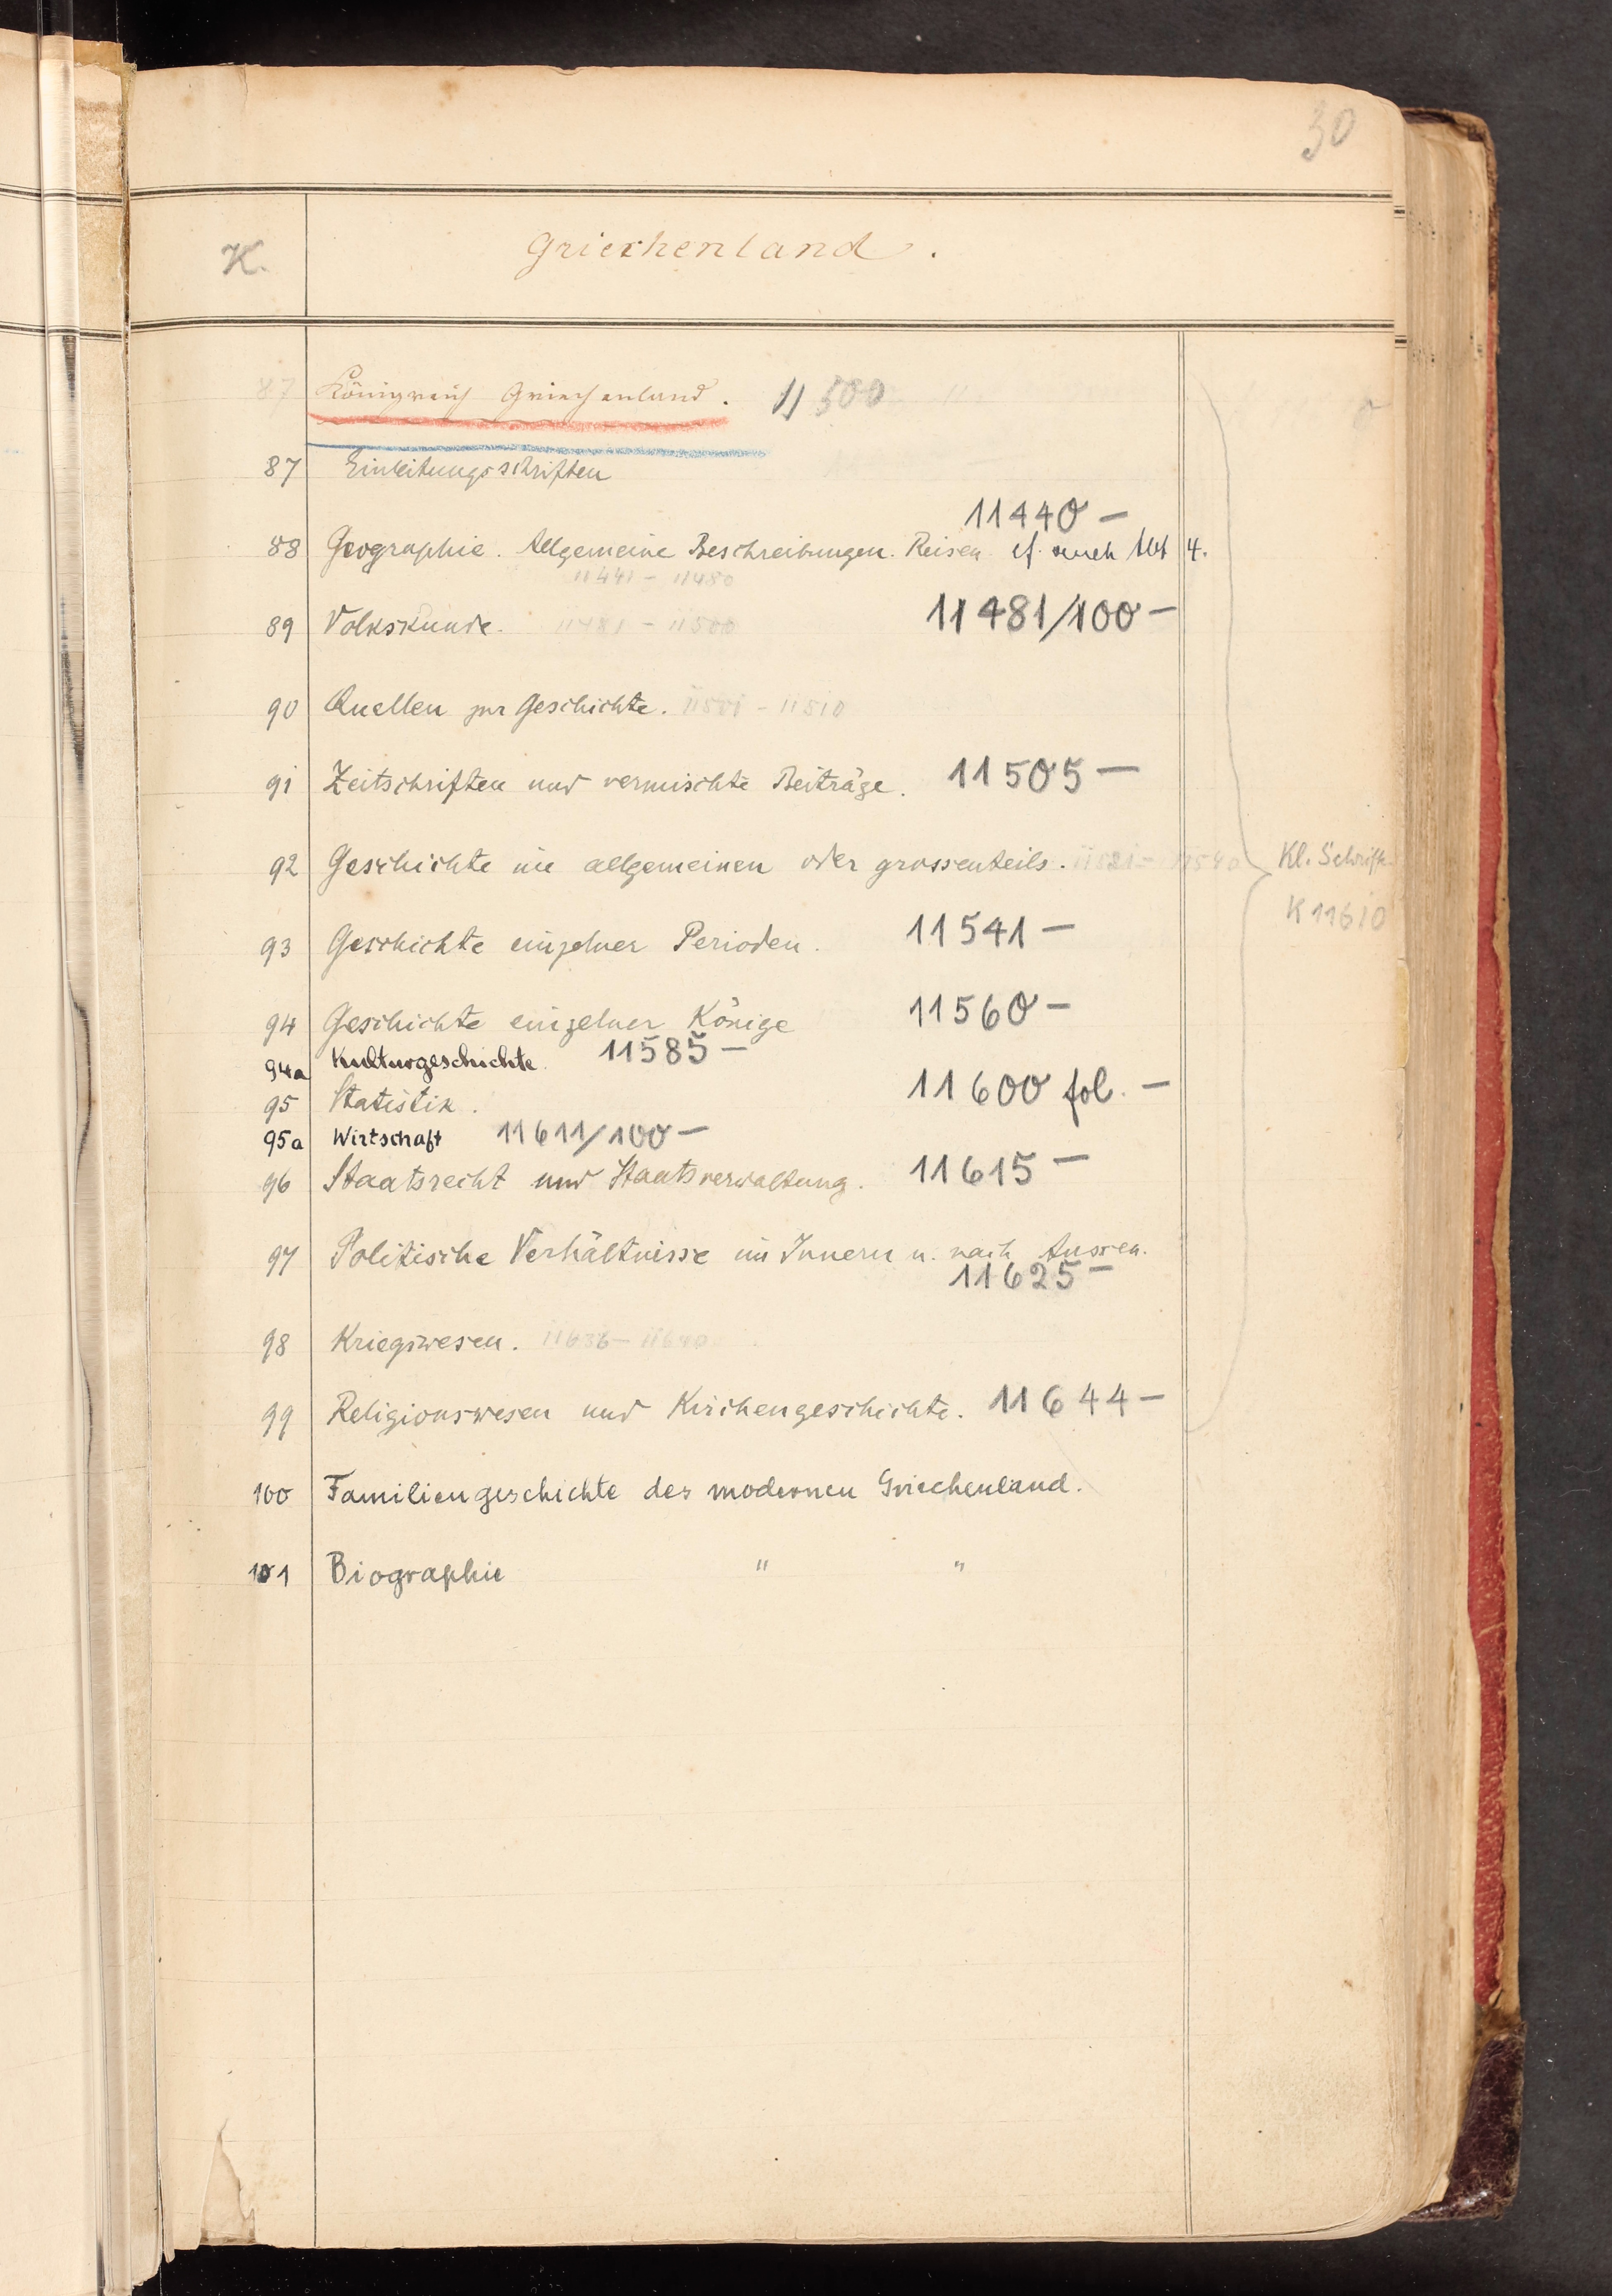 30
K.
Griechenland.
87 Königreich Griechenland. 11500
87 Einleitungsschriften
11440 —
88 Geographie. Allgemeine Beschreibungen. Reisen cf. auch Abt 4.
11441 - 11480
89 Volkskunde. 11481 - 11500 11481/100 —
90 Quellen zur Geschichte. 11501 - 11510
91 Zeitschriften und vermischte Beiträge. 11505 —
92 Geschichte im allgemeinen oder grossenteils. 11521 - 11540 Kl. Schrift.
K 11610
93 Geschichte einzelner Perioden. 11541 —
94 Geschichte einzelner Könige 11560 —
94a Kulturgeschichte. 11585 —
95 Statistik. 11600 fol. —
95a Wirtschaft 11611/100 —
96 Staatsrecht und Staatsverwaltung. 11615 —
97 Politische Verhältnisse im Innern u. nach Aussen.
11625 —
98 Kriegswesen. 11636 - 11640
99 Religionswesen und Kirchengeschichte. 11644 —
100 Familiengeschichte des modernen Griechenland.
101 Biographie " "